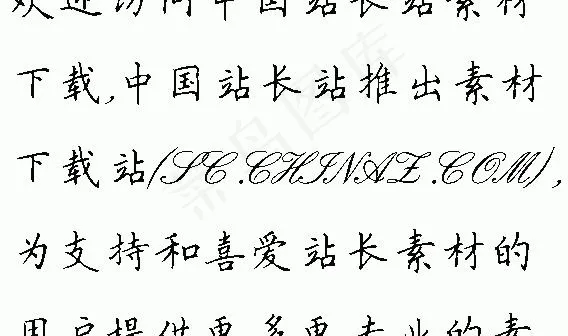 欢迎访问中国站长站素材
下载,中国站长站推出素材
下载站(SC.CHINAZ.COM),
为支持和喜爱站长素材的
用户提供更多更专业的素